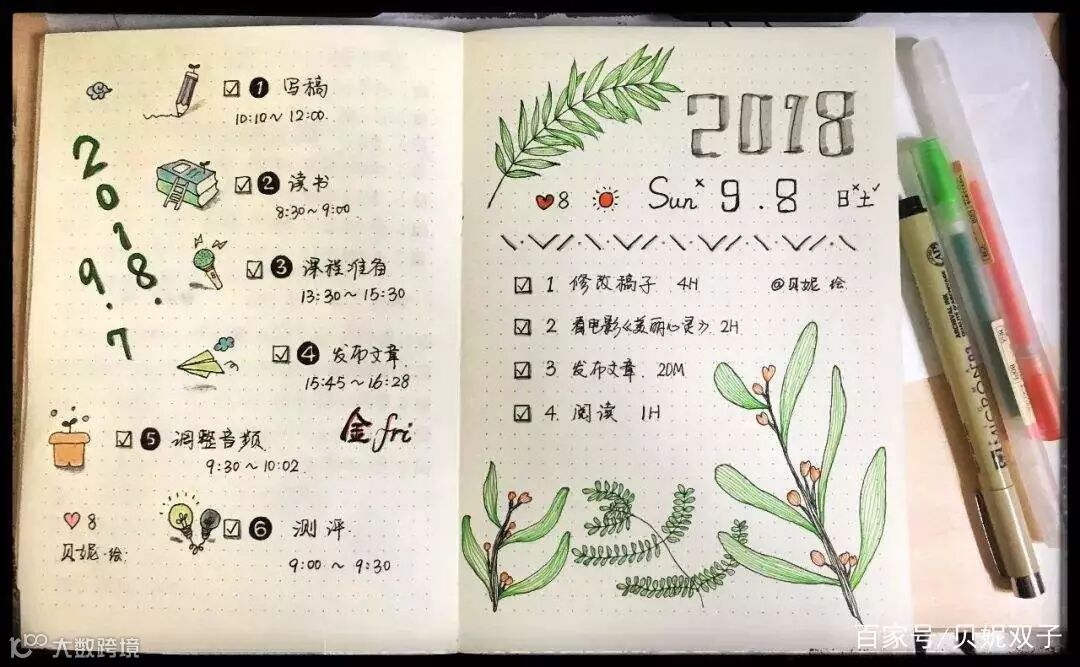 2018.
9.7
☑ ❶ 写稿
10:10~12:00.
☑ ❷ 读书
8:30~9:00
☑ ❸ 课程准备
13:30~15:30
☑ ❹ 发布文章
15:45~16:28
☑ ❺ 调整音频
9:30~10:02
金 fri
☑ ❻ 测评.
9:00~9:30
♥8
贝妮·绘
2018
♥8 Sun× 9.8 日×土✓
☑ 1 修改稿子 4H @贝妮 绘
☑ 2 看电影《美丽心灵》2H
☑ 3 发布文章 20M
☑ 4. 阅读 1H
大数跨境
百家号/贝妮双子